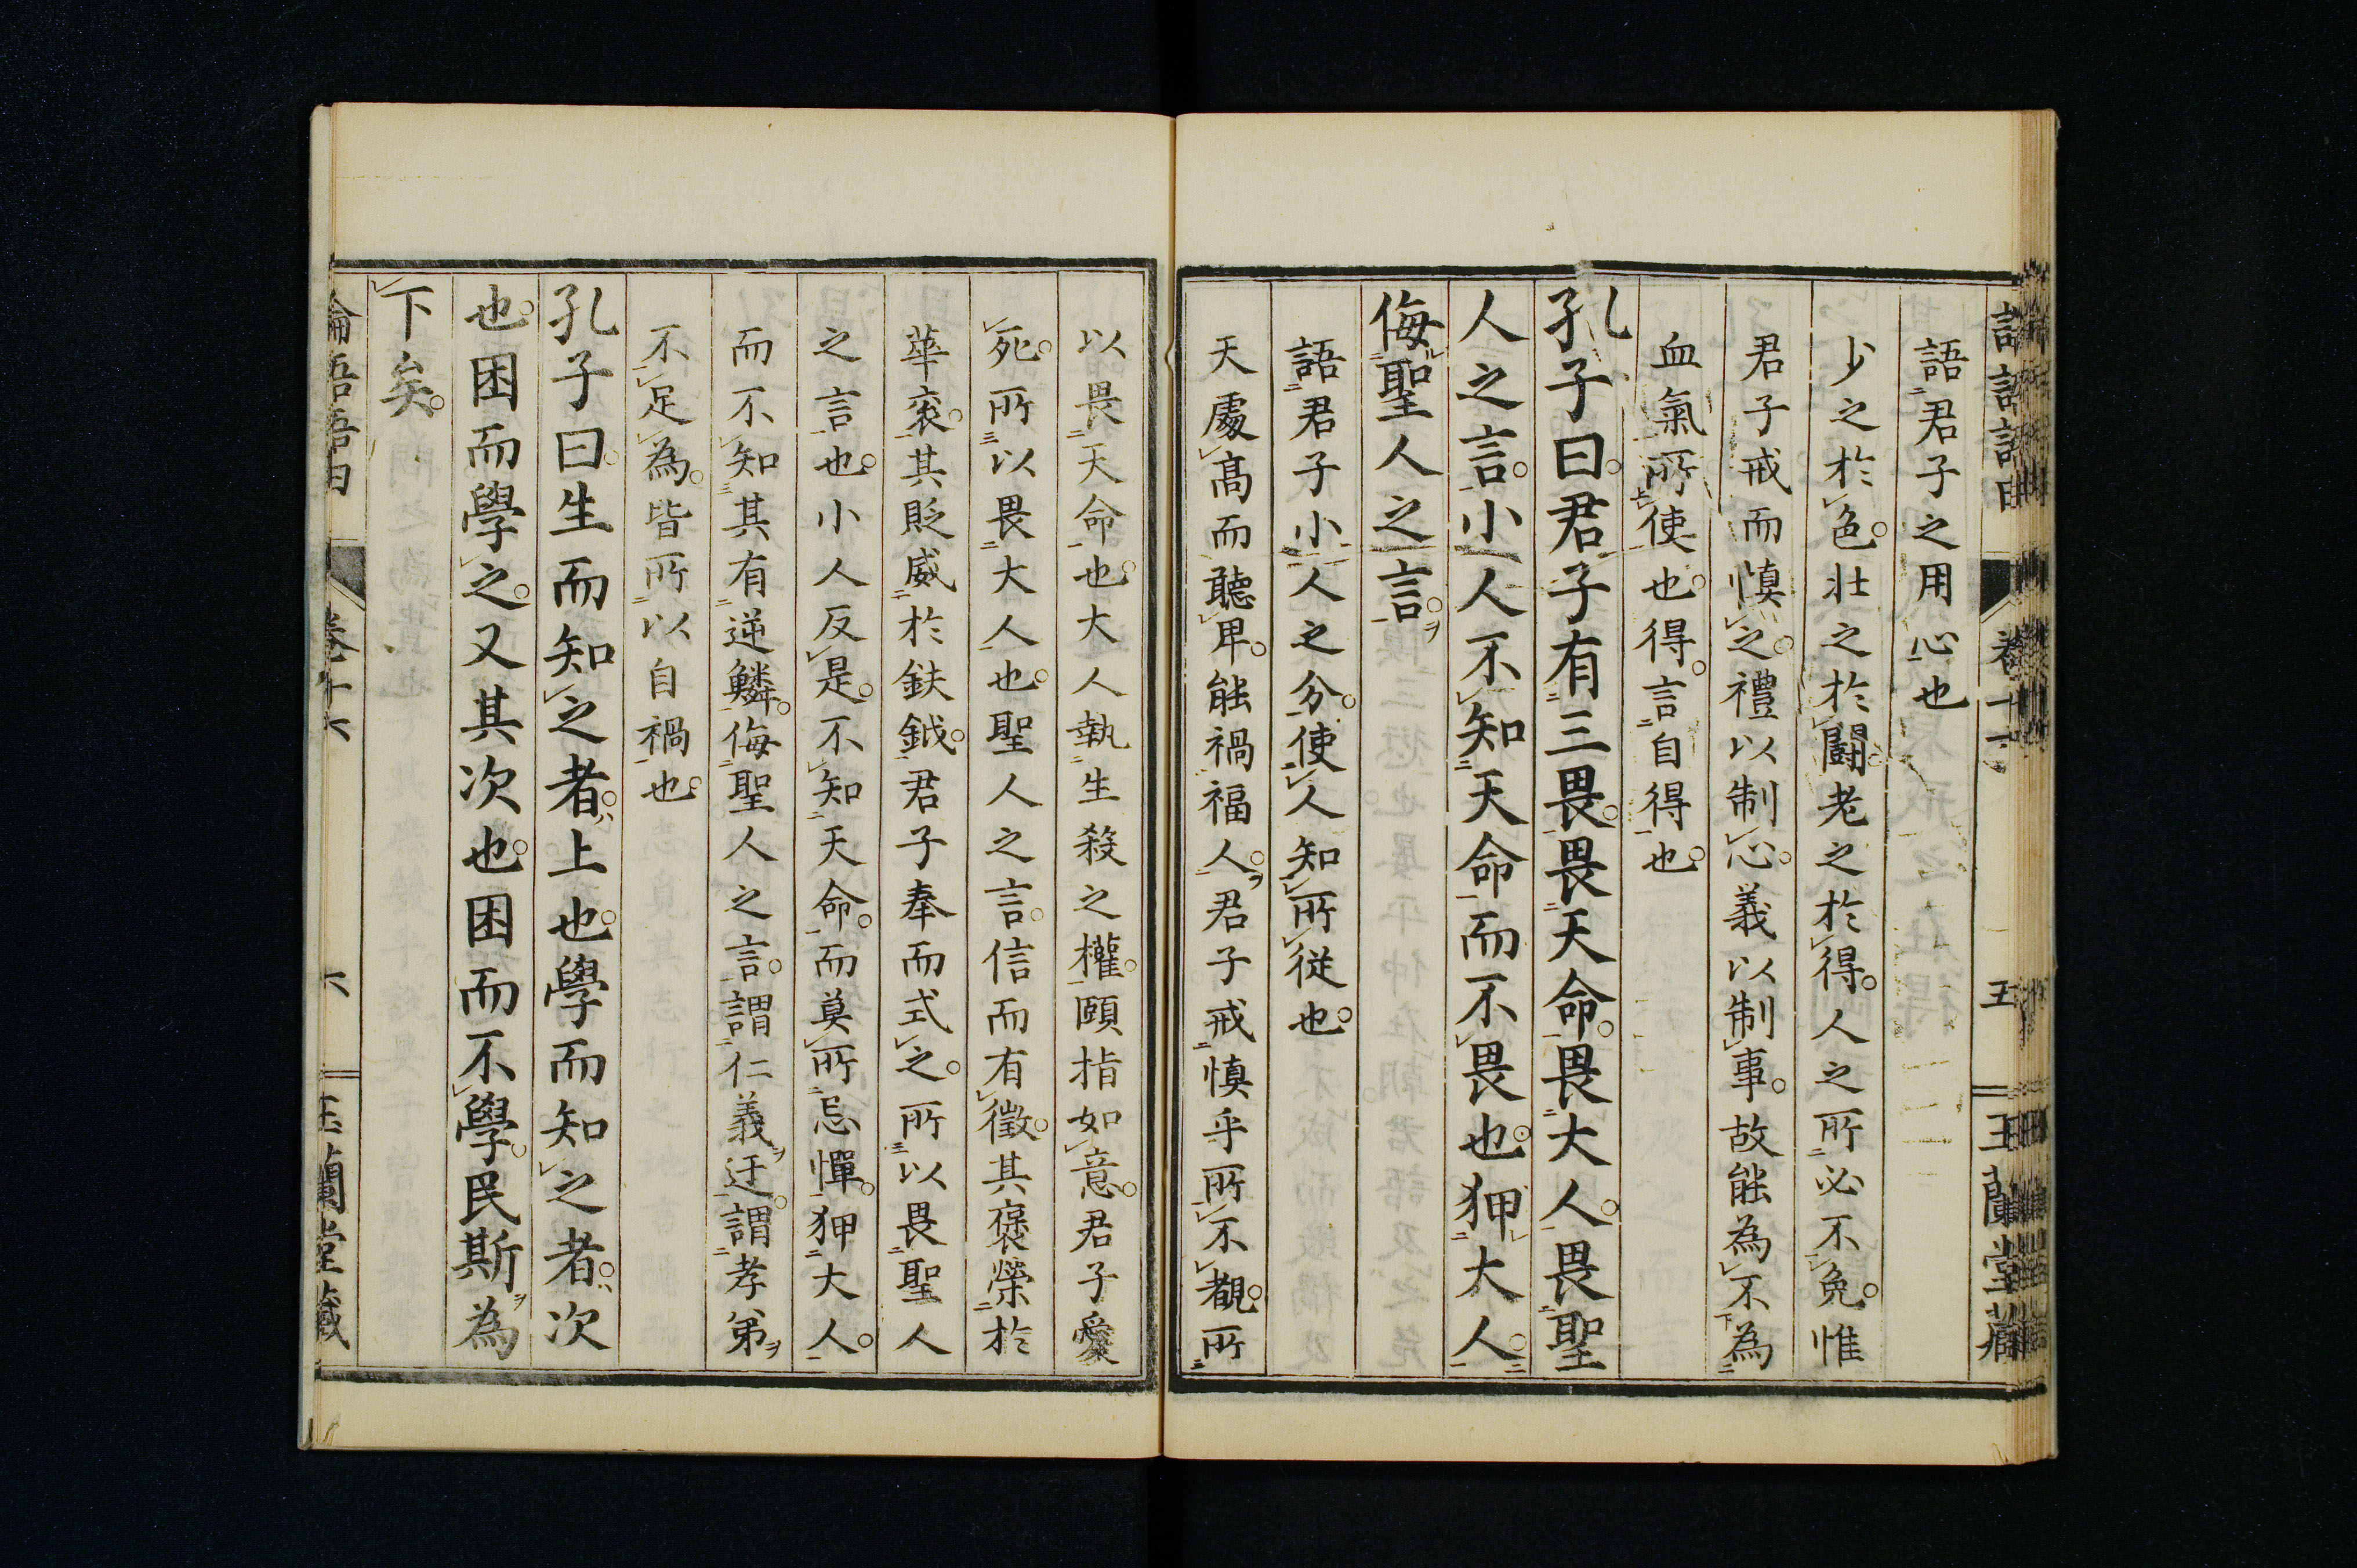 語君子之用心也
少之於色壯之於鬪老之於得人之所必不免惟
君子戒而慎之禮以制心義以制事故能為不為
血氣所使也得言自得也
孔子曰君子有三畏畏天命畏大人畏聖
人之言小人不知天命而不畏也狎大人
侮聖人之言
語君子小人之分使人知所從也
天處高而聽卑能禍福人君子戒慎乎所不覩所
以畏天命也大人執生殺之權頤指如意君子愛
死所以畏大人也聖人之言信而有徵其褒榮於
華袞其貶威於鈇鉞君子奉而式之所以畏聖人
之言也小人反是不知天命而莫所忌憚狎大人
而不知其有逆鱗侮聖人之言謂仁義迂謂孝弟
不足為皆所以自禍也
孔子曰生而知之者上也學而知之者次
也困而學之又其次也困而不學民斯為
下矣
論語語由 卷十六 六 玉蘭堂藏